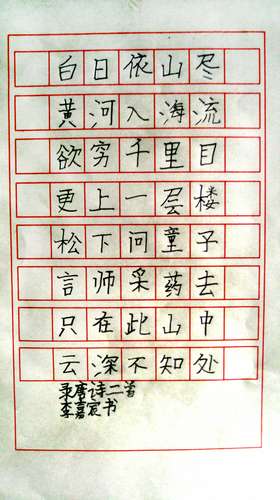 白日依山尽
黄河入海流
欲穷千里目
更上一层楼
松下问童子
言师采药去
只在此山中
云深不知处
录唐诗二首
李嘉宸书